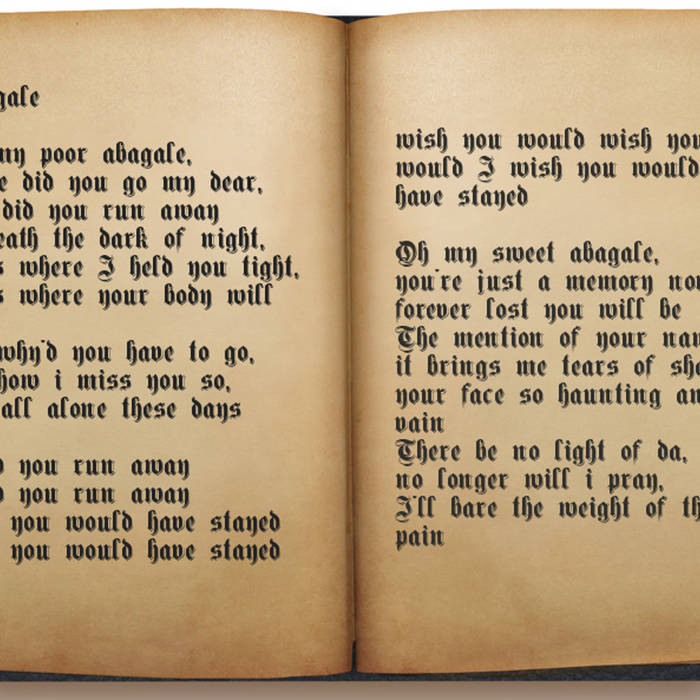 gale
my poor abagale,
e did you go my dear,
did you run away
eath the dark of night,
s where I held you tight,
s where your body will
why'd you have to go,
how i miss you so,
all alone these days
d you run away
d you run away
you would have stayed
you would have stayed
wish you would wish you
would I wish you would
have stayed
Oh my sweet abagale,
you're just a memory no
forever lost you will be
The mention of your nam
it brings me tears of sha
your face so haunting an
vain
There be no light of da,
no longer will i pray,
I'll bare the weight of th
pain